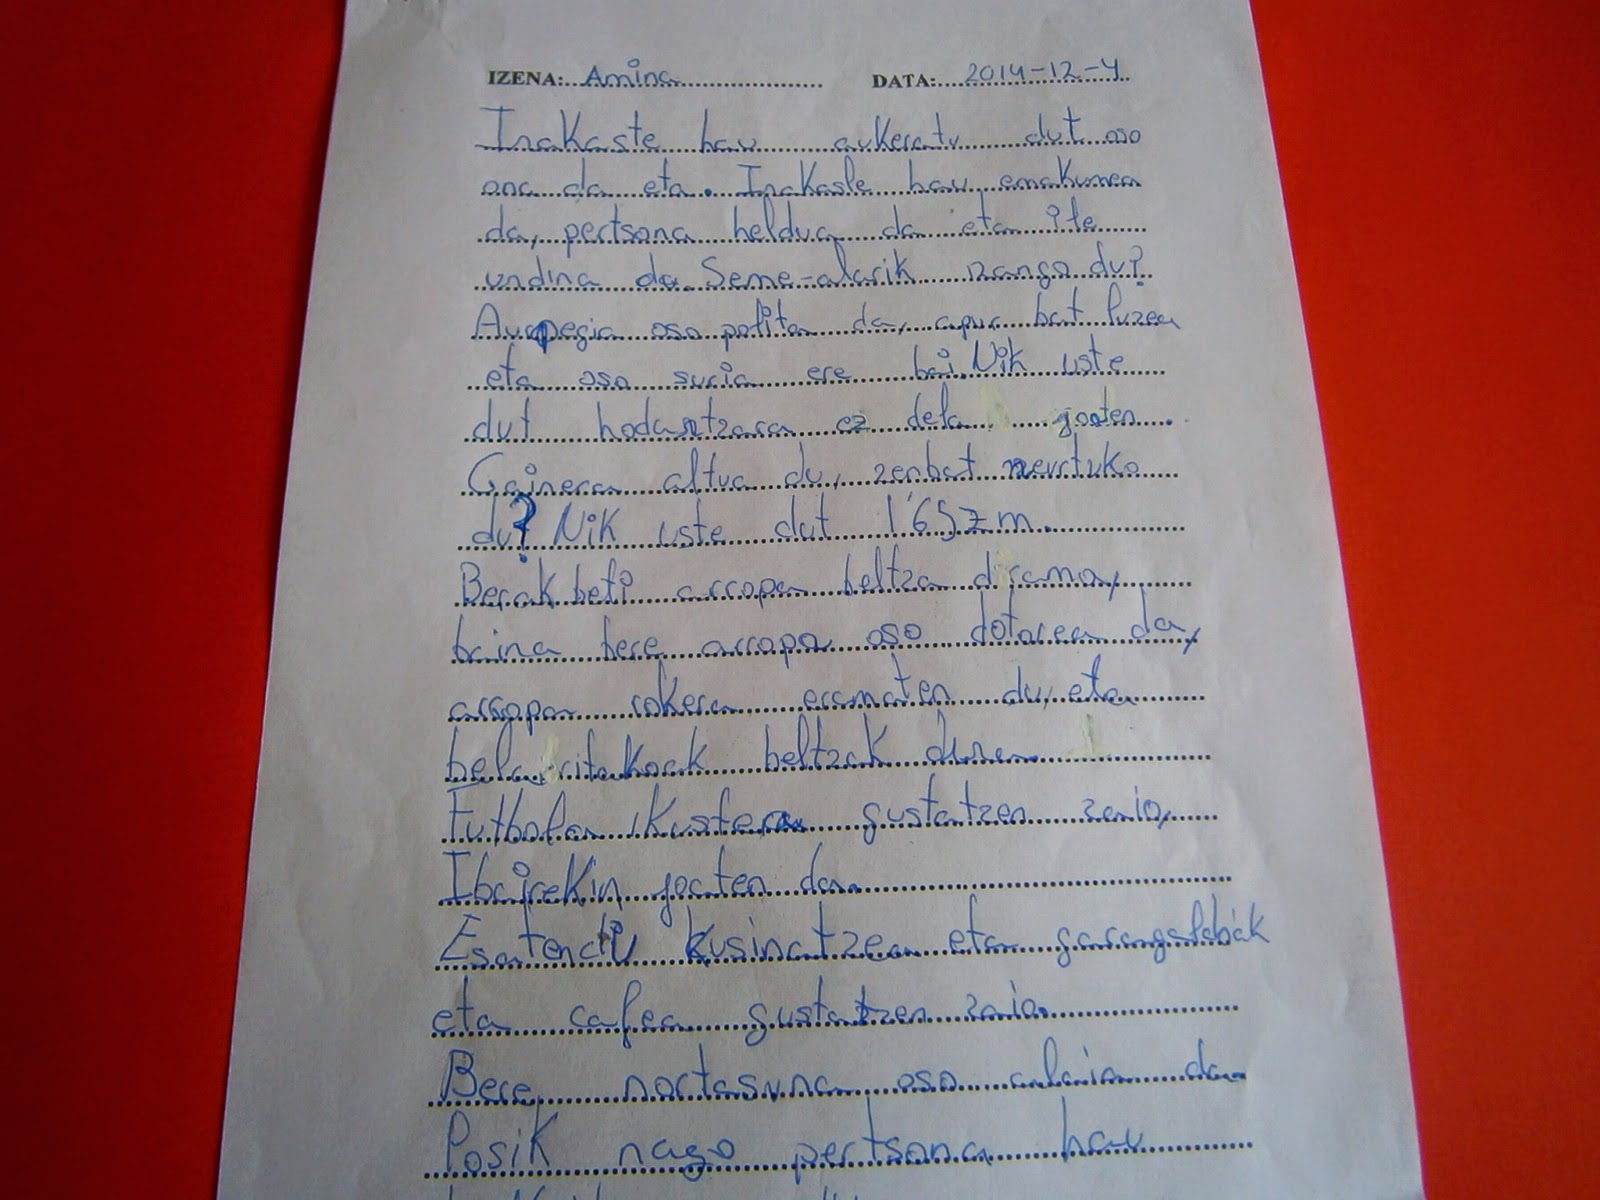 IZENA: Amina DATA: 2014-12-4
Irakaste hau aukeratu dut oso
ona da eta. Irakasle hau emakumea
da, pertsona heldua da eta ile
urdina da. Seme-alarik izango du?
Aurpegia oso polita da, apur bat luzea
eta oso suria ere bai. Nik uste
dut hodartzara ez dela joaten.
Gainera altua du, zenbat neurtuko
du? Nik uste dut 1'65 z m.
Berak beti arropa beltza dramo,
baina bere arropa oso dotorea da,
arropa rokera eramaten du, eta
belarritakoak beltzak diren
Futbola ikustera gustatzen zaio,
Ibairekin joaten da.
Esaten du kusinatzea eta
eta cafea gustatzen zaio.
Bere nortasuna oso alaia da
Posik nago pertsona hau